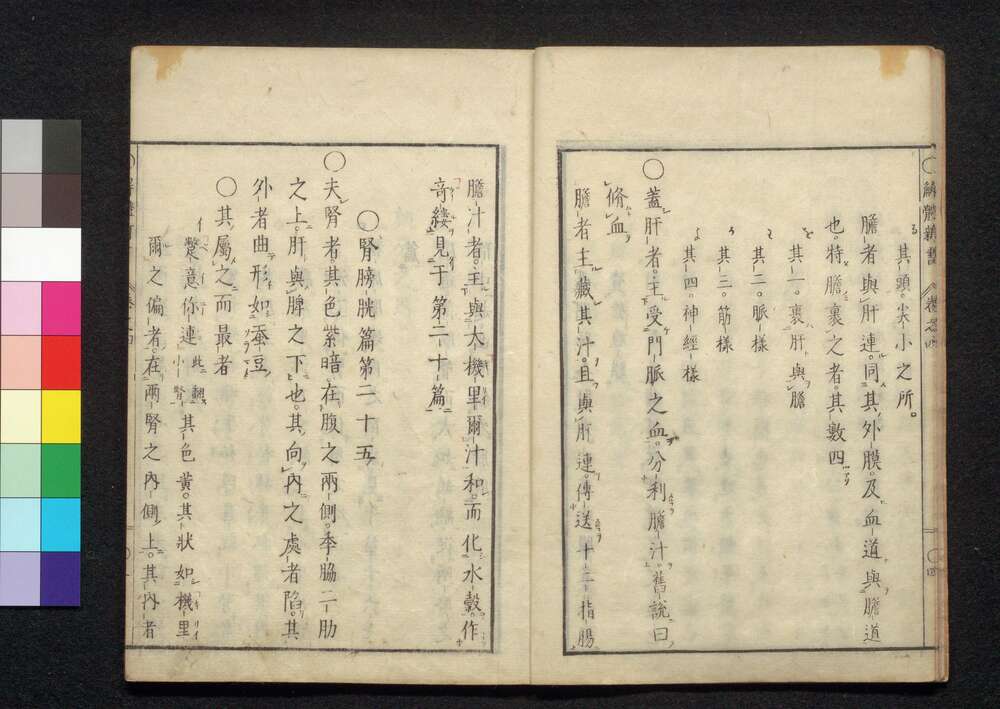 解體新書 卷之四
る 其頭尖小之所。
膽者與肝連。同其外膜。及血道與膽道
也。特膽裹之者。其數四
を 其一。裹肝與膽
わ 其二。脈樣
か 其三。筋樣
よ 其四。神經樣
○蓋肝者。主受門脈之血。分利膽汁。舊說曰
脩血
膽者主藏其汁。且與肝連。傳送十二指腸
○四
膽汁者。主與大機里爾汁和。而化水穀。作
奇縷見于第二十篇
○腎膀胱篇第二十五
○夫腎者其色紫暗。在腹之兩側。季脇二肋
之上。肝與脾之下也。其向內之處者陷。其
外者曲。形如蚕豆
○其屬之而最者
イ 蟞意你連 此翻小腎 其色黃。其狀如機里
爾之偏者。在兩腎之內側上。其內者